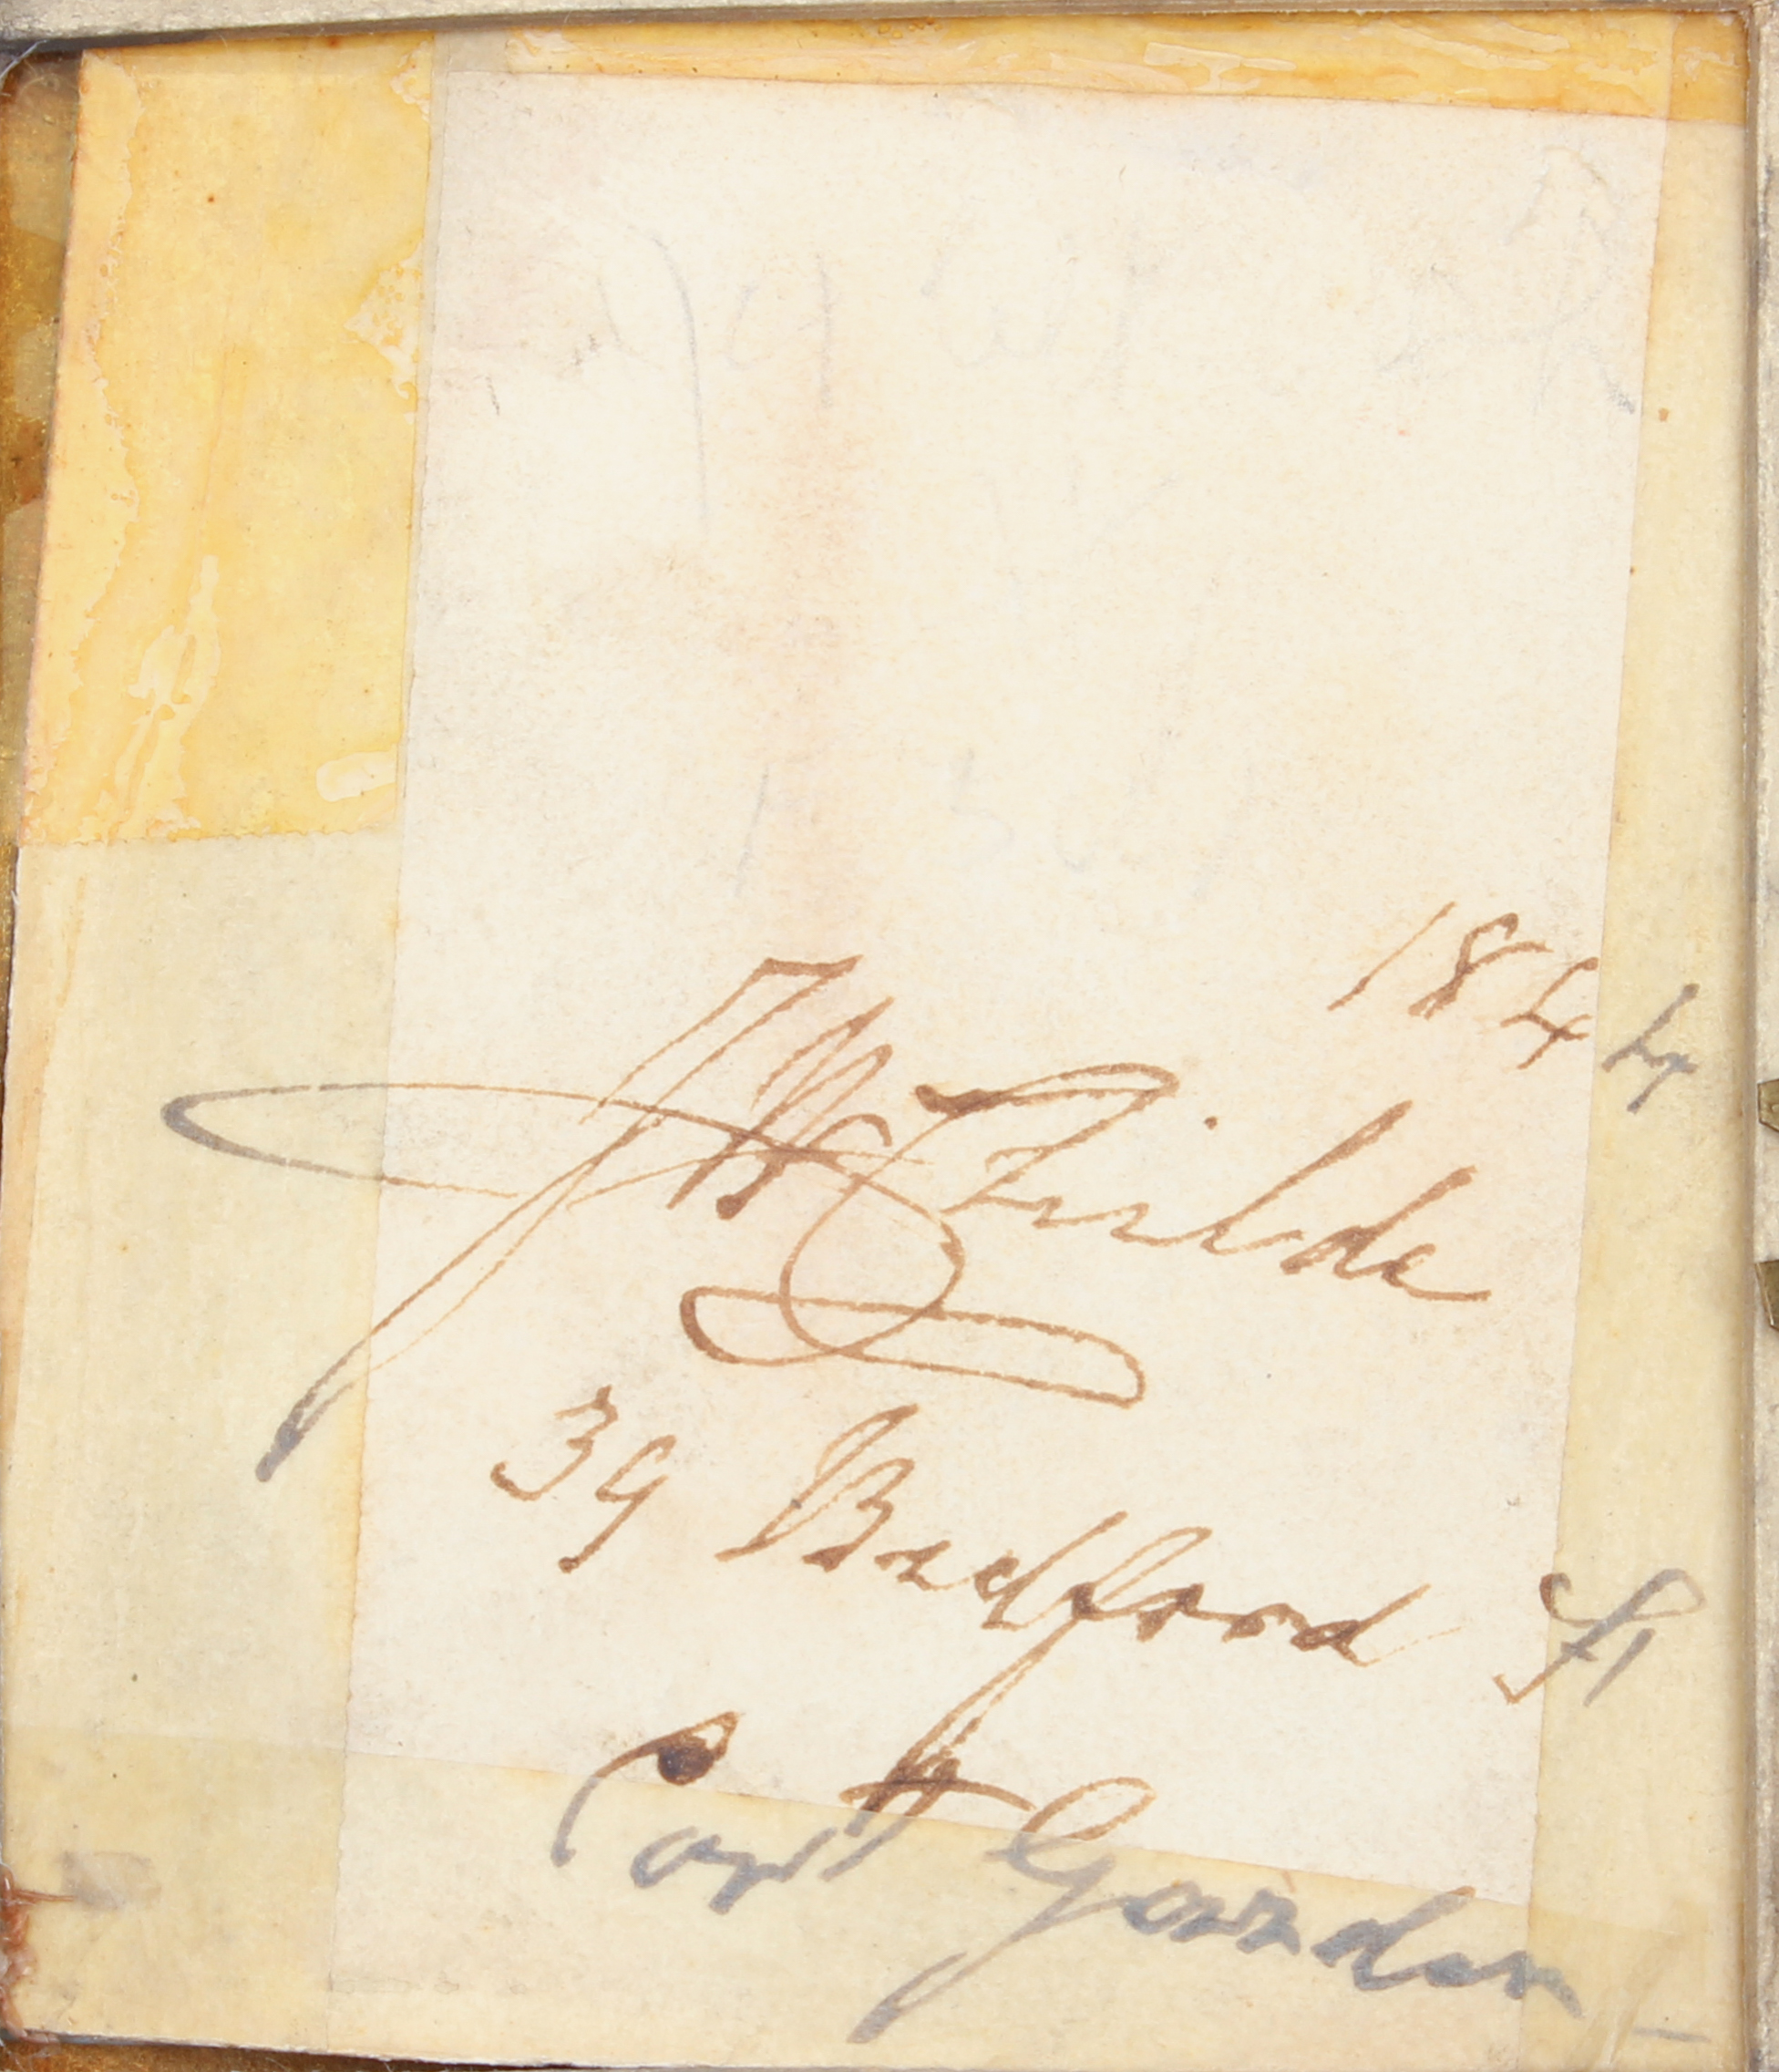 1844
JW Childe
39 Bedford St
Covt Garden